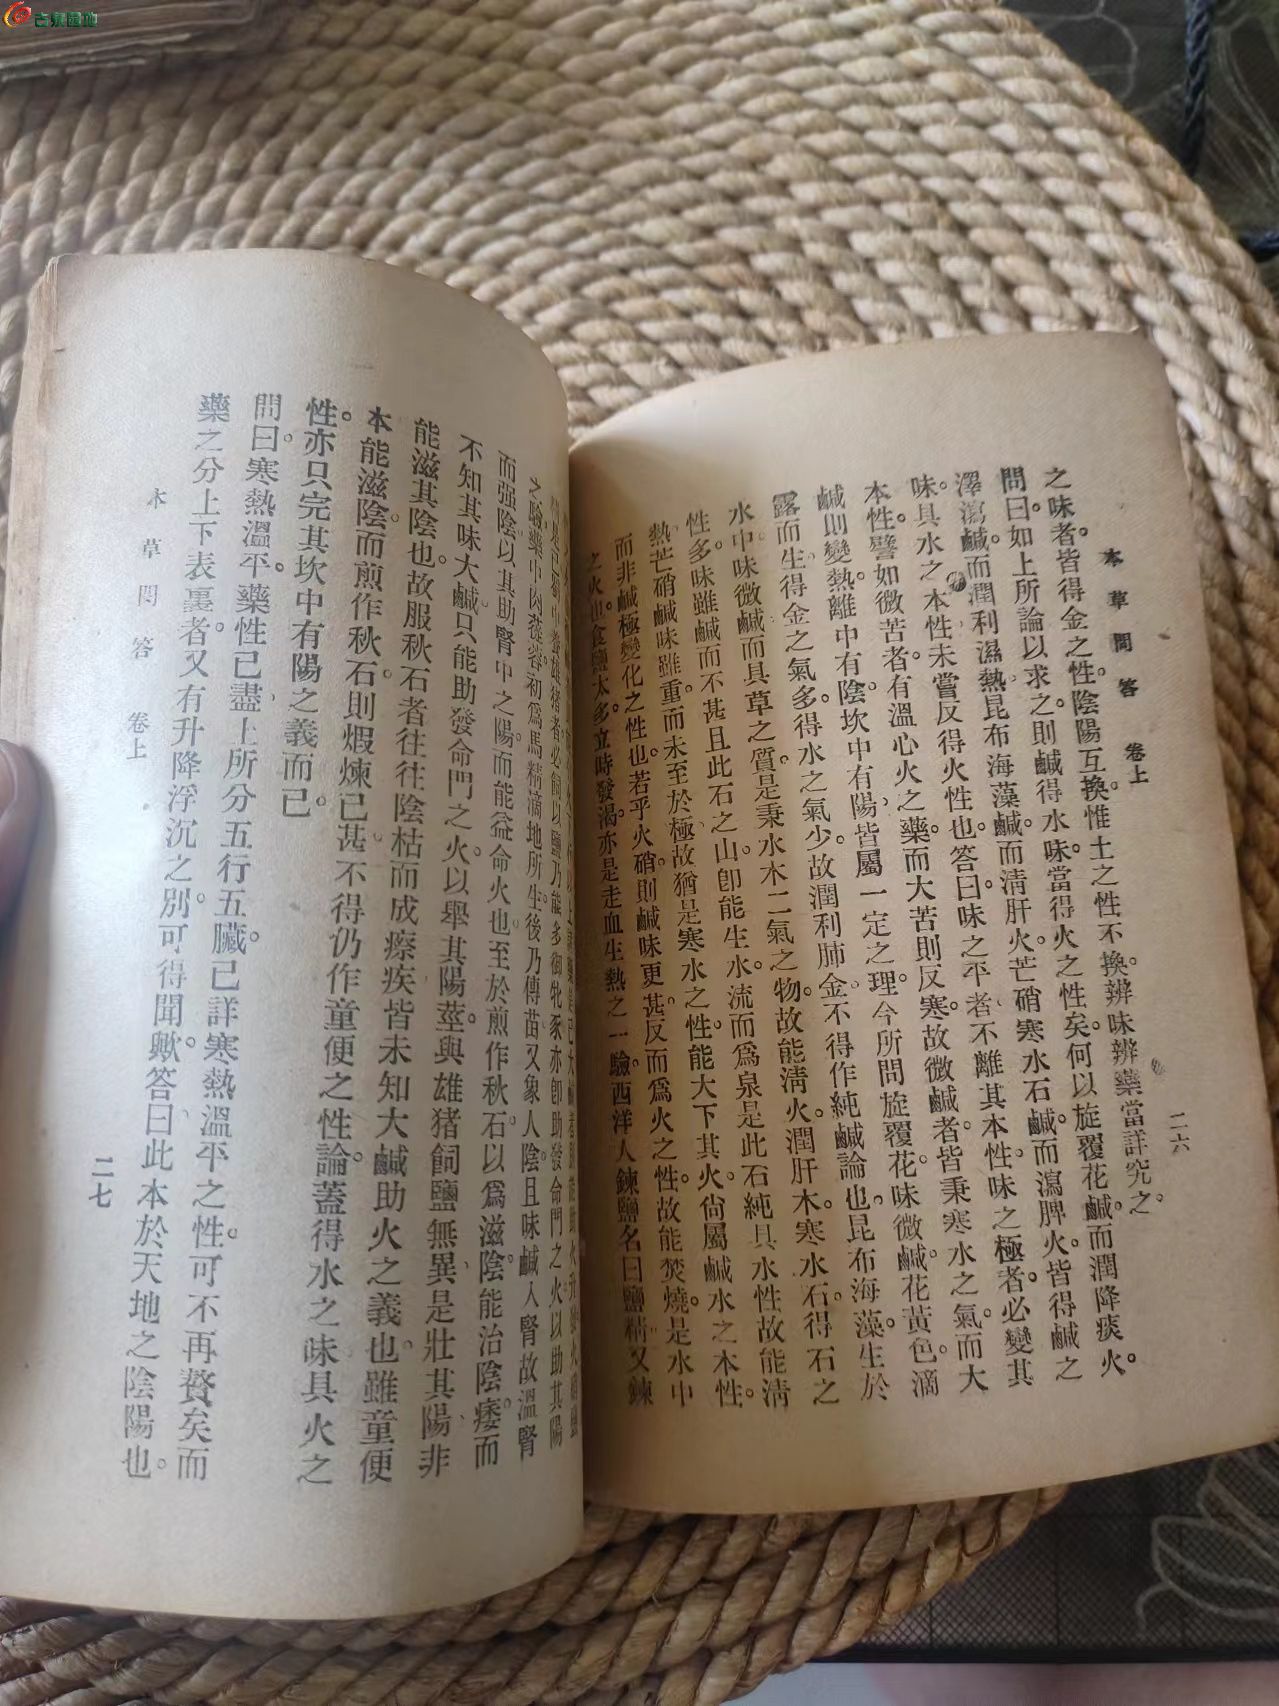 古泉園地
本草問答 卷上
二六
之味者。皆得金之性。陰陽互換。惟土之性不換。辨味辨藥。當詳究之。
問曰。如上所論以求之。則鹹得水味。當得火之性矣。何以旋覆花鹹。而潤降痰火。
澤瀉鹹。而潤利濕熱。昆布海藻鹹。而清肝火。芒硝寒水石鹹。而瀉脾火。皆得鹹之
味。具水之本性。未嘗反得火性也。答曰。味之平者。不離其本性。味之極者。必變其
本性。譬如微苦者。有溫心火之藥。而大苦則反寒。故微鹹者。皆秉寒水之氣。而大
鹹則變熱。離中有陰。坎中有陽。皆屬一定之理。今所問旋覆花。味微鹹。花黃色。滴
露而生。得金之氣多。得水之氣少。故潤利肺金。不得作純鹹論也。昆布海藻。生於
水中。味微鹹。而具草之質。是秉水木二氣之物。故能清火潤肝木。寒水石。得石之
性多。味雖鹹而不甚。且此石之山。卽能生水。流而爲泉。是此石純具水性。故能清
熱。芒硝鹹味雖重。而未至於極。故猶是寒水之性。能大下其火。尙屬鹹水之本性。
而非鹹極變化之性也。若乎火硝。則鹹味更甚。反而爲火之性。故能焚燒。是水中
之火也。食鹽太多。立時發渴。亦是走血生熱之一驗。西洋人鍊鹽名曰鹽精。又鍊
之驗。藥中肉蓯蓉。初爲馬精滴地所生。後乃傳苗。又象人陰。且味鹹入腎。故溫腎
而强陰。以其助腎中之陽。而能益命火也。至於煎作秋石。以爲滋陰。能治陰痿。而
不知其味大鹹。只能助發命門之火。以舉其陽莖。與雄猪飼鹽無異。是壯其陽。非
能滋其陰也。故服秋石者。往往陰枯而成瘵疾。皆未知大鹹助火之義也。雖童便
本能滋陰。而煎作秋石。則煆煉已甚。不得仍作童便之性論。蓋得水之味。具火之
性。亦只完其坎中有陽之義而已。
問曰。寒熱溫平。藥性已盡。上所分五行五臟。已詳寒熱溫平之性。可不再贅矣。而
藥之分上下表裏者。又有升降浮沉之別。可得聞歟。答曰。此本於天地之陰陽也。
本草問答 卷上
二七